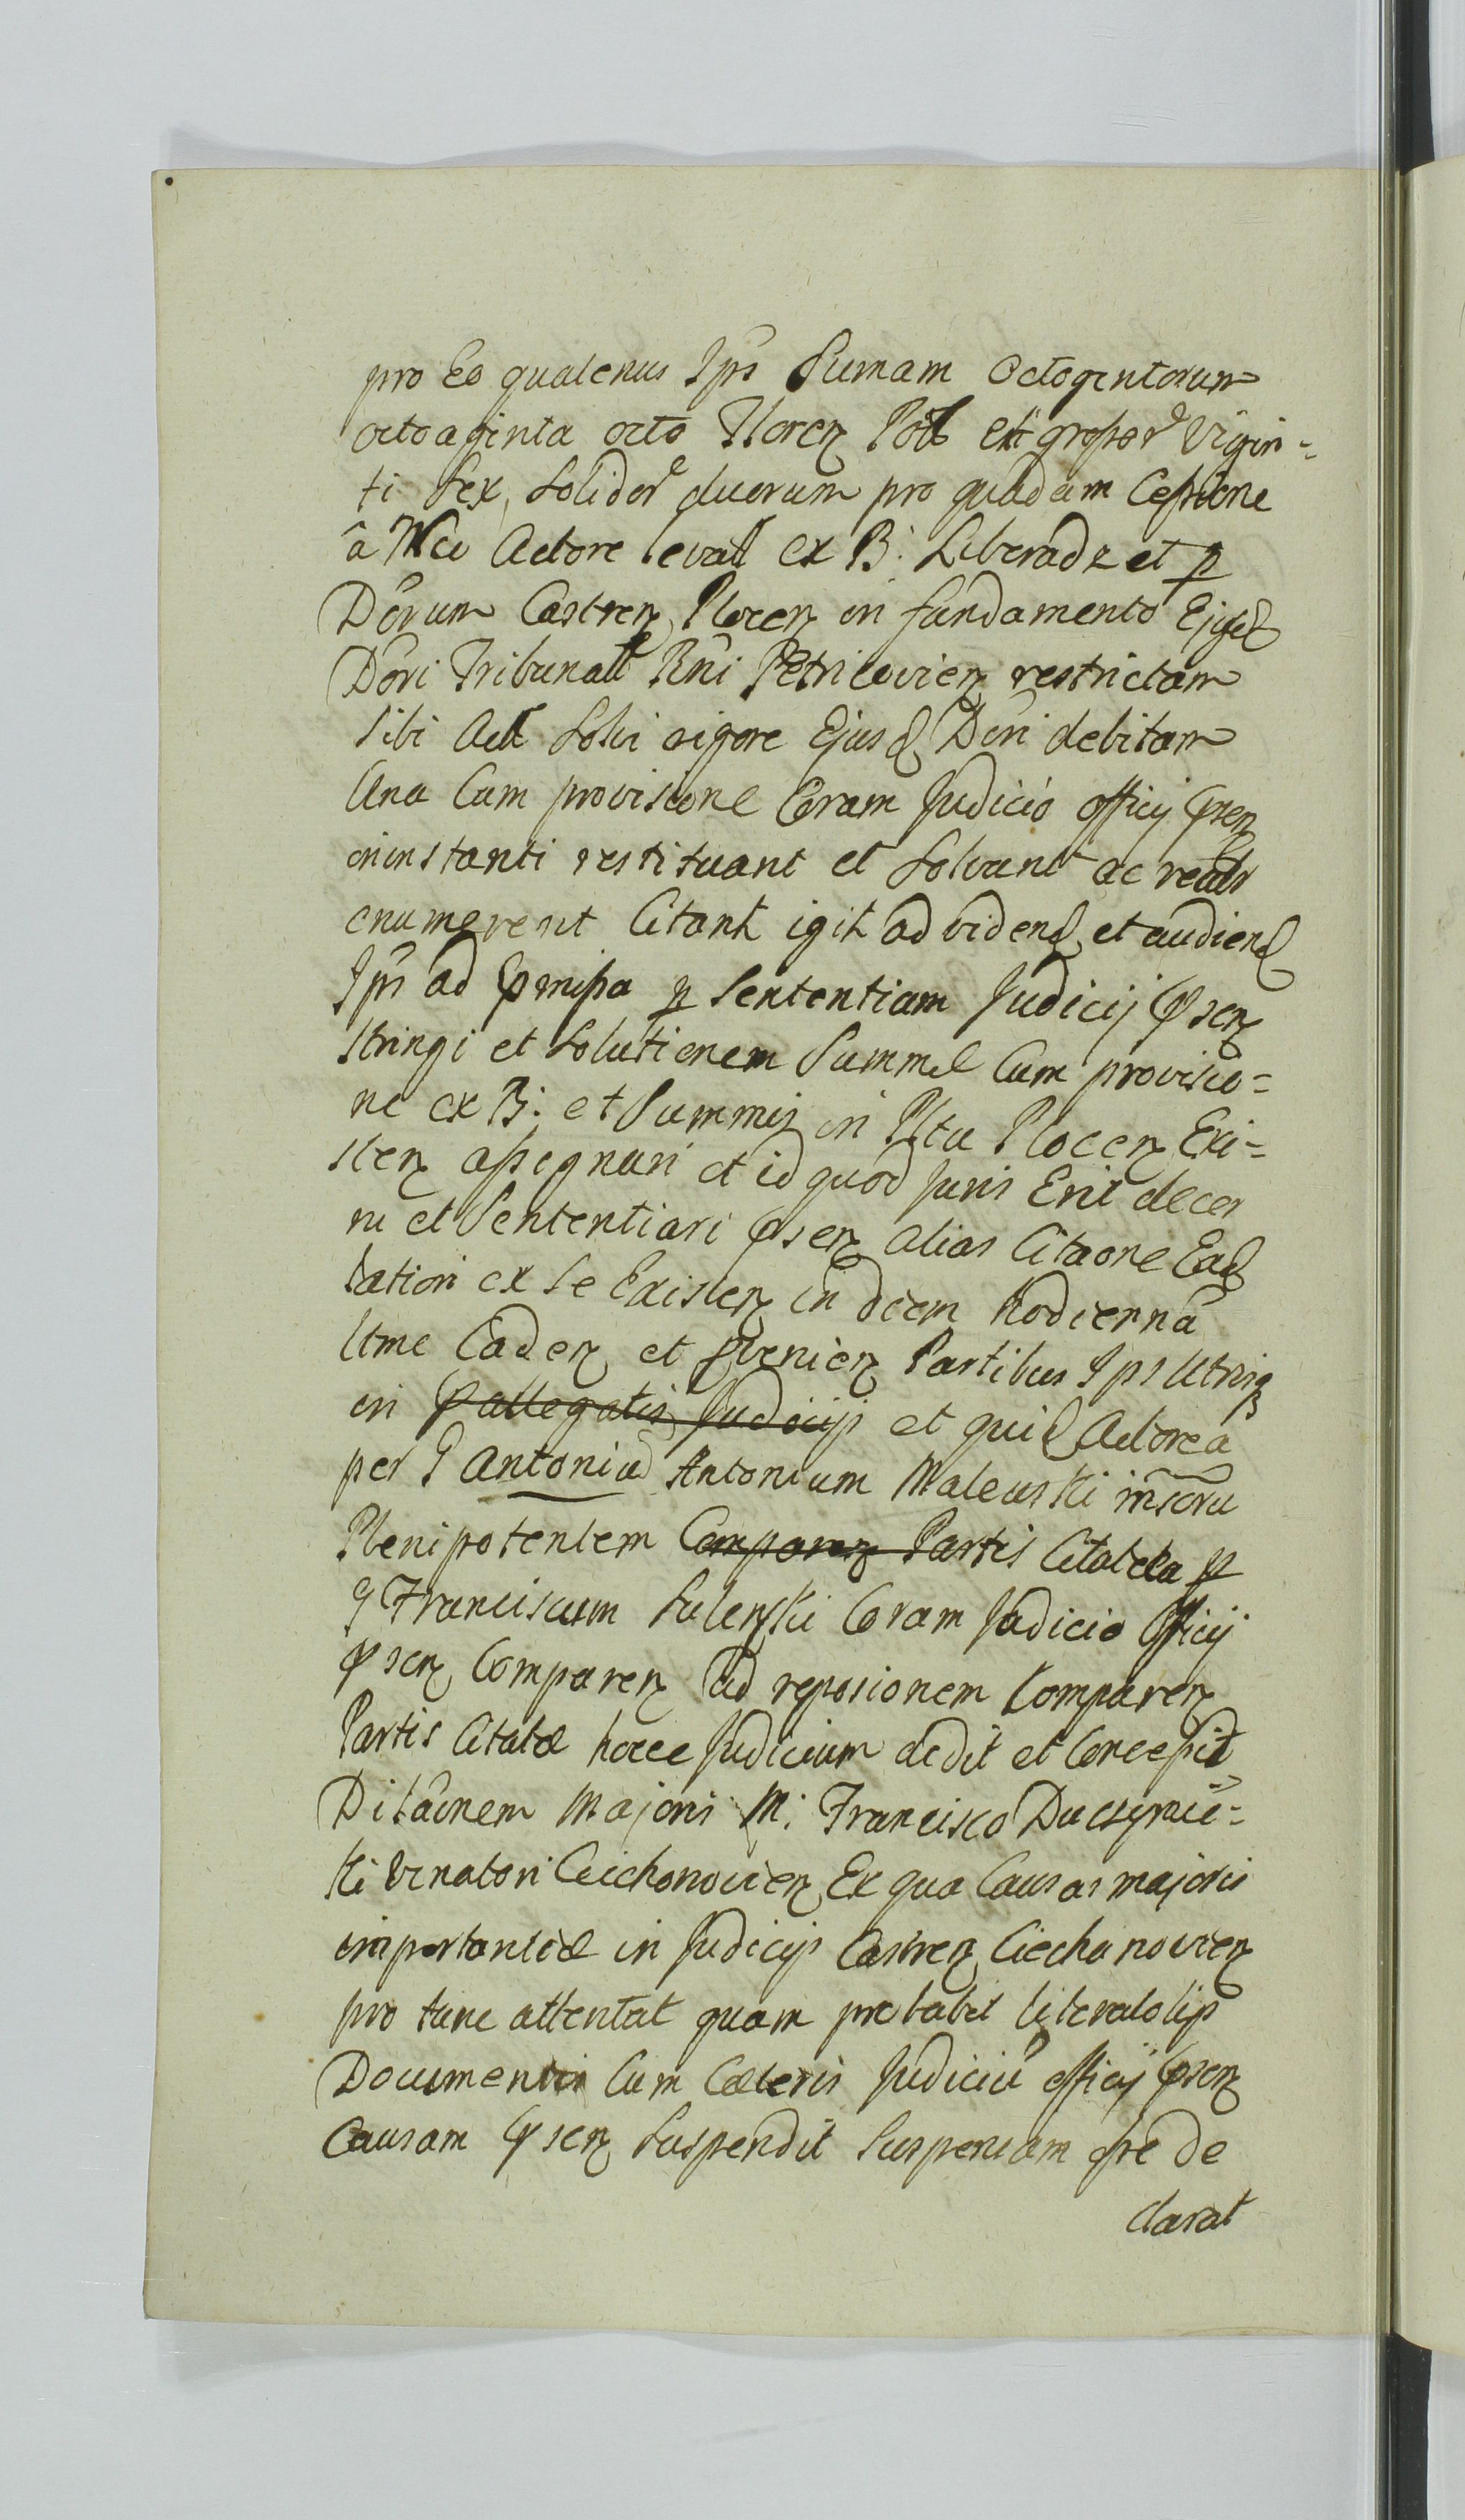 pro Eo quatenus Ips Sumam Octogentorum
octoaginta octo Floren Poll et grossor Vigin-
ti Sex, Solidor duorum pro quadam Cessione
â Mco Actore levat ex B: Liberadz et p
Dōrum Castren Plocen in fundamento Ejusd
Dōri Tribunalt Rni Petricovien restrictam
sibi Act Solvi vigore Ejusd Dōri debitam
Una Cum provisione Coram Judicio officij psen
in instanti restituant et Solvant ac realr
enumerent Citant igit ad vidend et audiend
Ips ad pmissa p Sententiam Judicij psen
stringi et Solutionem Summæ Cum provisio-
ne ex B: et Summis in Pltu Plocen Exi-
sten assegnari et id quod Juris Erit decer
ni et Sententiari psen alias Citaone Ead
latiori ex se Existen in diem hodiernā
Ume Caden et pvenien Partibus Ips Utrisq
in pallegatis Judicijs et quid Actorea
per G Antoniu Antonium Malewski insoru
Plenipotentem Comparen Partis Citatæa p
G Franciscum Sulenski Coram Judicio Officij
psen Comparen ad reposionem Comparen
Partis Citatæ hocce Judicium dedit et Concessit
Ditâonem Majoris M: Francisco Duczymiń-
ski Venatori Ciechonovien Ex qua Causas majoris
importantiæ in Judicijs Castren Ciechanovien
pro tunc attentat quam probabit literatolijs
Documentis Cum Cæteris Judiciū officij psen
Causam psen Suspendit Suspensam esse de
clarat